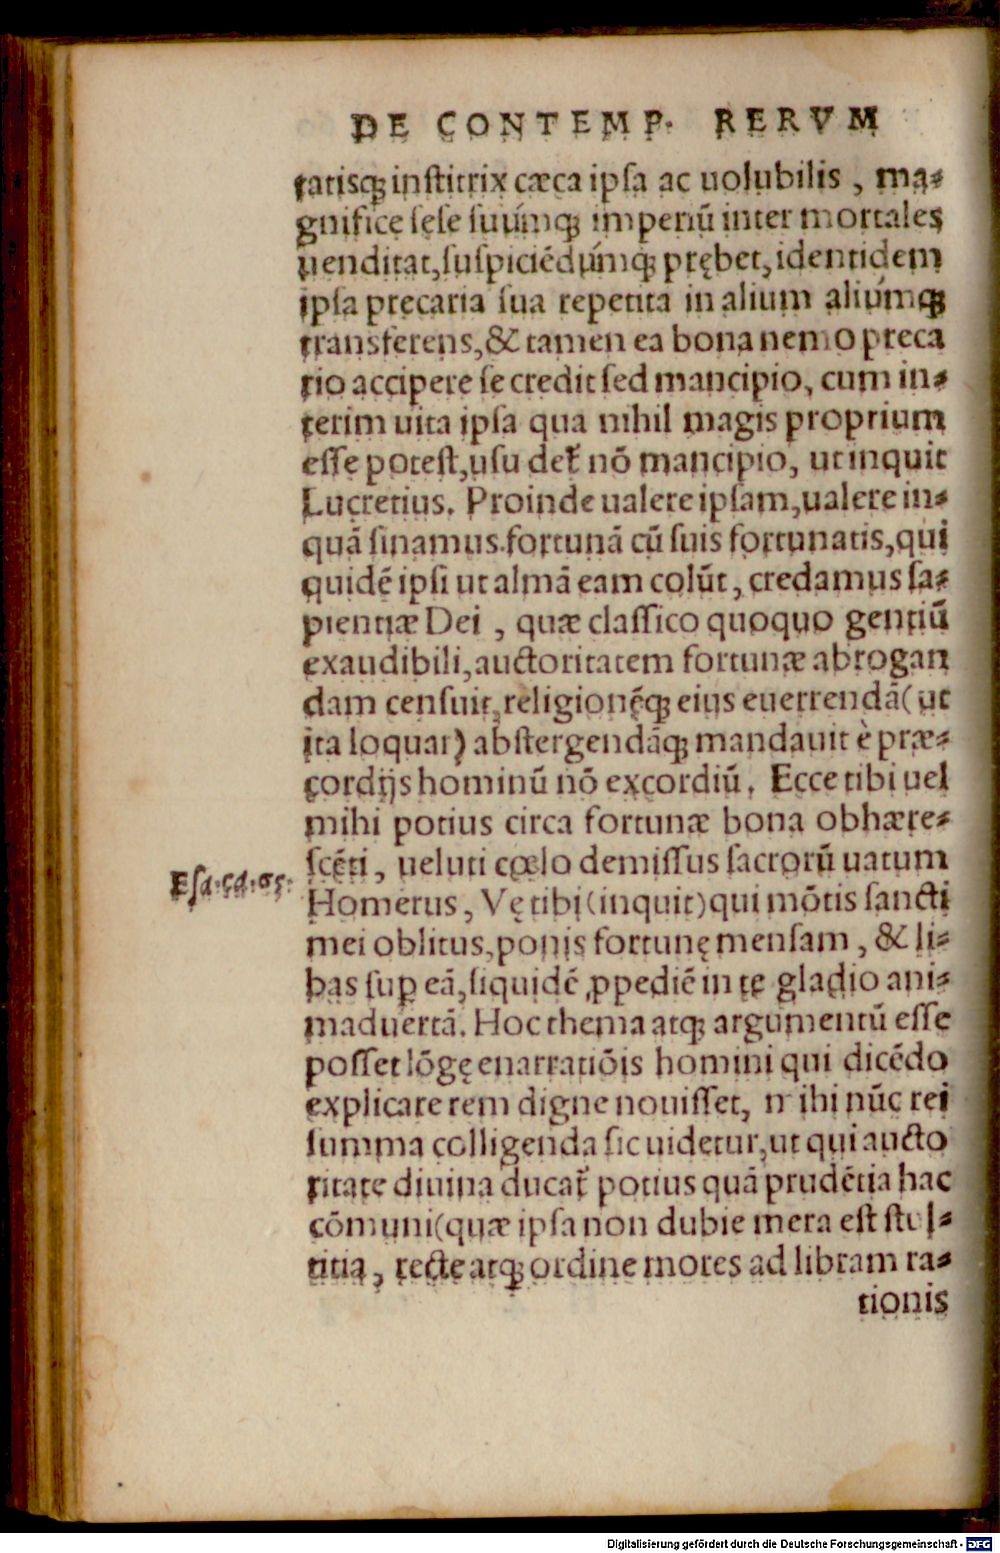 DE CONTEMP. RERVM
tatisq; institrix cæca ipsa ac uolubilis, ma-
gnifice sese suúmq; imperiū inter mortales
uenditat, suspiciēdúmq; prębet, identidem
ipsa precaria sua repetita in alium aliúmq;
transferens, & tamen ea bona nemo preca
rio accipere se credit sed mancipio, cum in-
terim uita ipsa qua nihil magis proprium
esse potest, usu det̃ nō mancipio, ut inquit
Lucretius. Proinde ualere ipsam, ualere in-
quā sinamus. fortunā cū suis fortunatis, qui
quidē ipsi ut almā eam colūt, credamus sa-
pientiæ Dei, quæ classico quoquo gentiū
exaudibili, auctoritatem fortunæ abrogan
dam censuit, religionḗq; eius euerrendā (ut
ita loquar) abstergendāq; mandauit è præ-
cordijs hominū nō excordiū. Ecce tibi uel
mihi potius circa fortunæ bona obhære-
scēti, ueluti cœlo demissus sacrorū uatum
Esa. ca. 65.
Homerus, Vę tibi (inquit) qui mōtis sancti
mei oblitus, ponis fortunę mensam, & li-
bas sup eā, siquidē ꝓpediē in te gladio ani-
maduertā. Hoc thema atq; argumentū esse
posset lōgę enarratiōis homini qui dicēdo
explicare rem digne nouisset, mihi nūc rei
summa colligenda sic uidetur, ut qui aucto
ritate diuina ducat̃ potius quā prudētia hac
cōmuni (quæ ipsa non dubie mera est stul-
titia, recte atq; ordine mores ad libram ra-
tionis
Digitalisierung gefördert durch die Deutsche Forschungsgemeinschaft - DFG